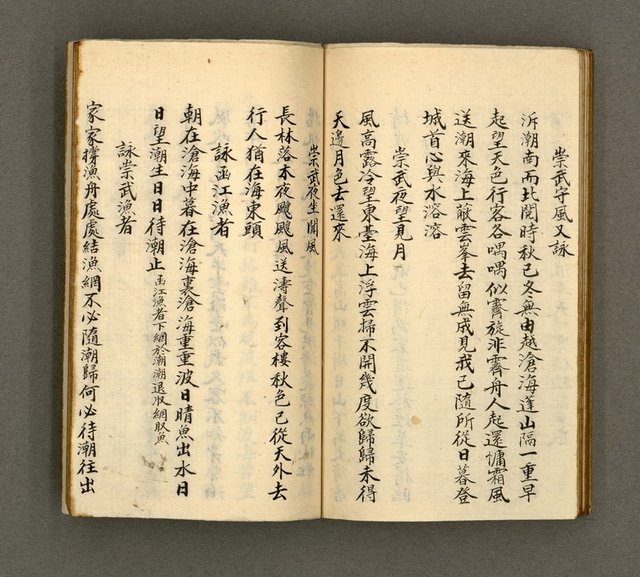 崇武守風又詠
泝潮南而北閱時秋已冬無由越滄海蓬山隔一重早
起望天色行客各喁喁似霽旋非霽舟人起還慵霜風
送潮來海上簸雲峯去留無成見我已隨所從日暮登
城首心與水溶溶
崇武夜望見月
風高露冷望東臺海上浮雲掃不開幾度欲歸歸未得
天邊月色去還來
崇武夜坐聞風
長林落木夜颼颼風送濤聲到客樓秋色已從天外去
行人猶在海東頭
詠函江漁者
朝在滄海中暮在滄海裏滄海重重波日晴魚出水日
日望潮生日日待潮止函江漁者下網於潮潮退収網取魚
詠崇武漁者
家家撐漁舟處處結漁網不必隨潮歸何必待潮往出